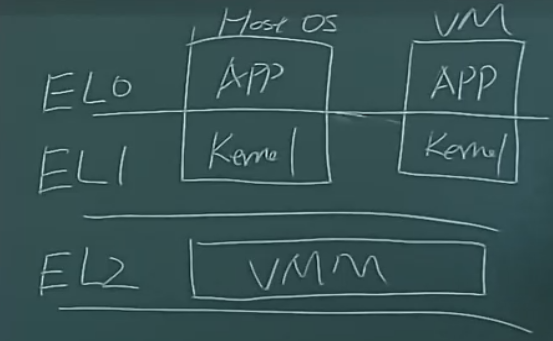 Host OS VM
EL0 APP APP
EL1 Kernel Kernel
EL2 VMM